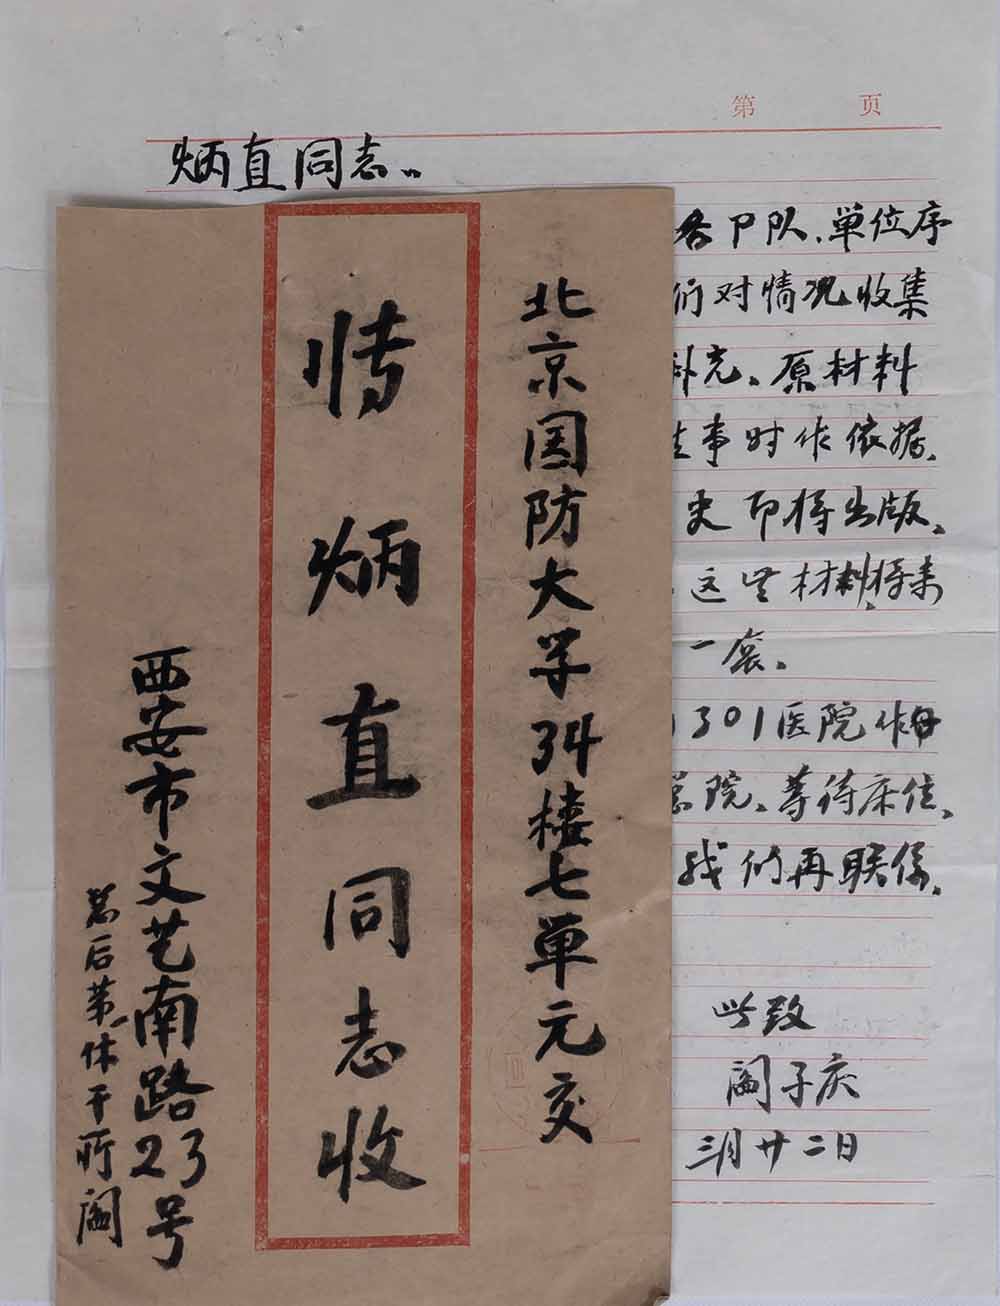 第 页
炳直同志:
各卩队、单位序
们对情况收集
补充、原材料
事时作依据、
史即将出版、
这些材料将来
一套、
301医院作
总院、等待床位、
我们再联係、
此致
阎子庆
三月廿二日
北京国防大学34楼七单元交
炳直同志收
西安市文艺南路23号
总后第一休干所阎